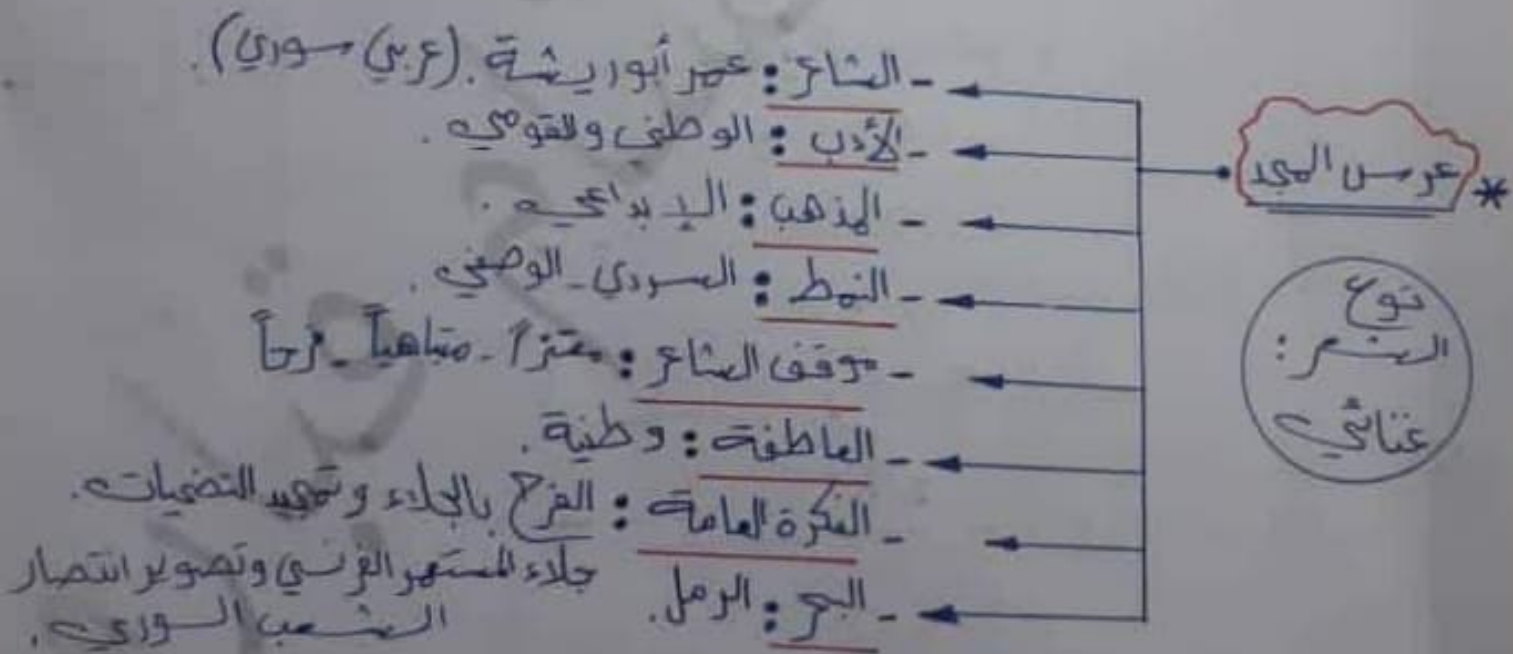 * عرس المجد
نوع
الشعر :
غنائي
- الشاعر : عمر أبو ريشة . (عربي سوري) .
- الأدب : الوطني والقومي .
- المذهب : الإبداعي .
- النمط : السردي - الوصفي .
- موقف الشاعر : معتزاً - متباهياً - فرحاً
- العاطفة : وطنية .
- الفكرة العامة : الفرح بالجلاء وتمجيد التضحيات .
جلاء المستعمر الفرنسي وتصوير انتصار
الشعب السوري .
- البحر : الرمل .